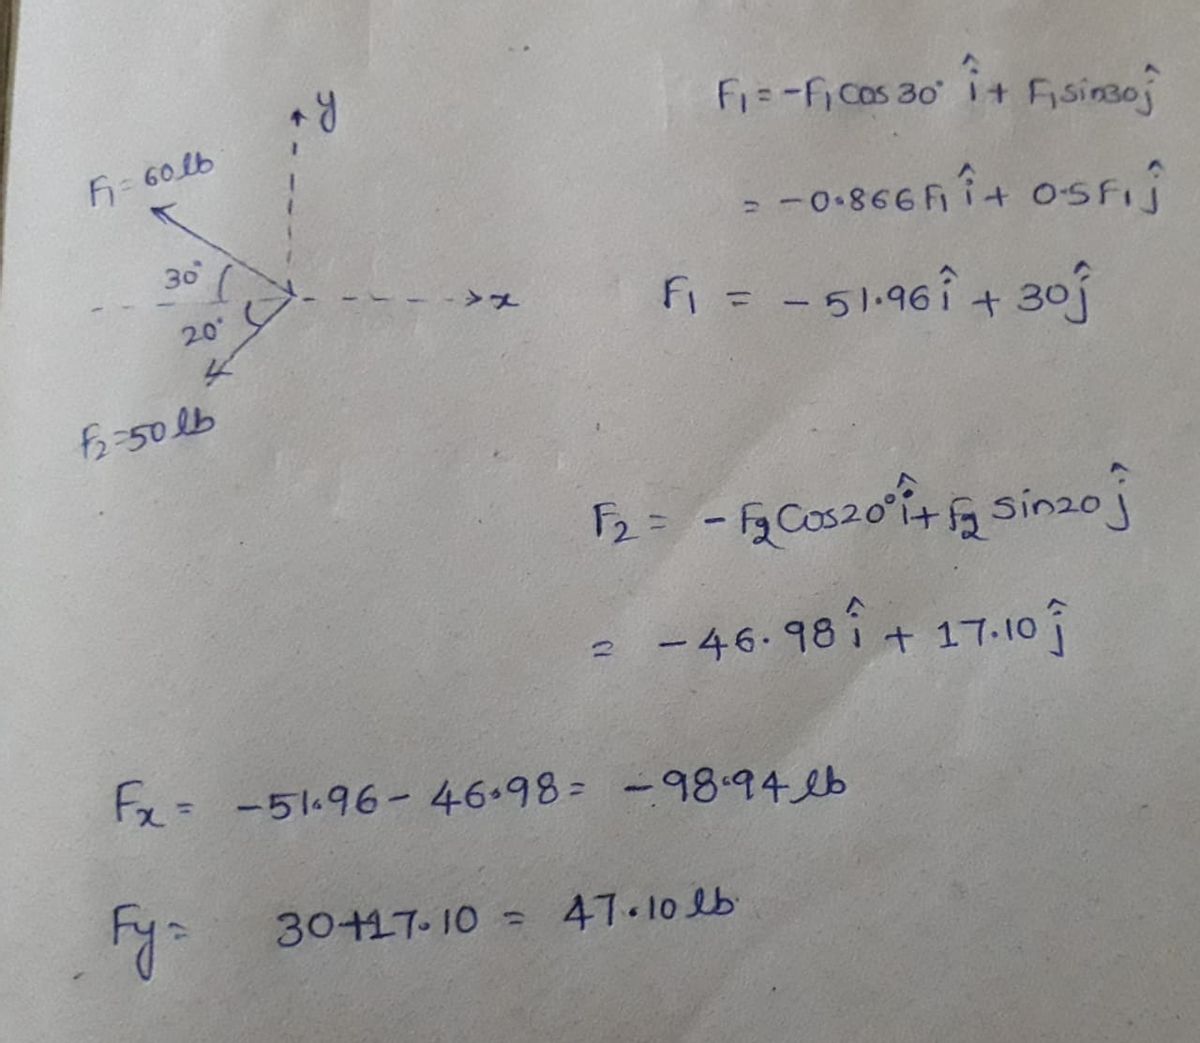 y
F₁ = 60 lb
30°
x
20°
F₂ = 50 lb
F₁ = -F₁ cos 30° î + F₁ sin30 ĵ
= -0.866 F₁ î + 0.5 F₁ ĵ
F₁ = - 51.96 î + 30 ĵ
F₂ = - F₂ Cos20° î + F₂ sin20 ĵ
= - 46.98 î + 17.10 ĵ
Fx = -51.96 - 46.98 = -98.94 lb
Fy = 30+17.10 = 47.10 lb